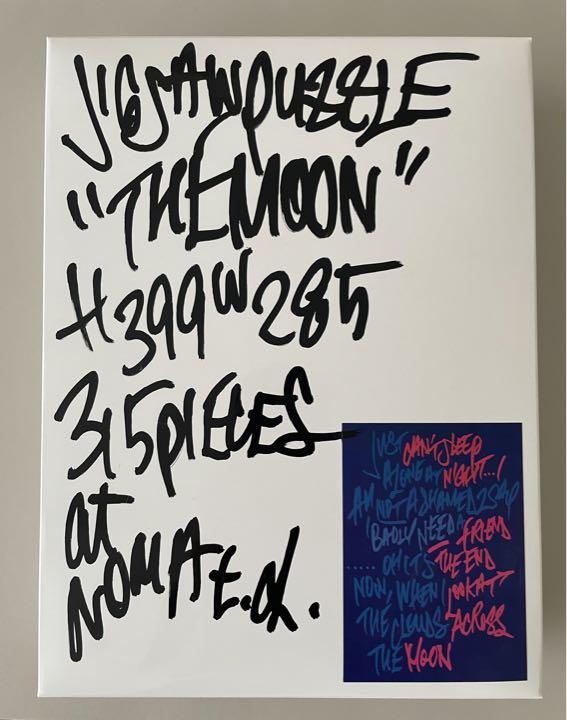 JIGSAW PUZZLE
"THE MOON"
H399 W285
315 PIECES
at
NOMA t.d.
JUST CAN'T SLEEP
ALONE AT NIGHT...!
AM NOT ASHAMED 2 SAY
BADLY NEED A FRIEND
..... OH IT'S THE END
NOW, WHEN I LOOK AT
THE CLOUDS ACROSS
THE MOON